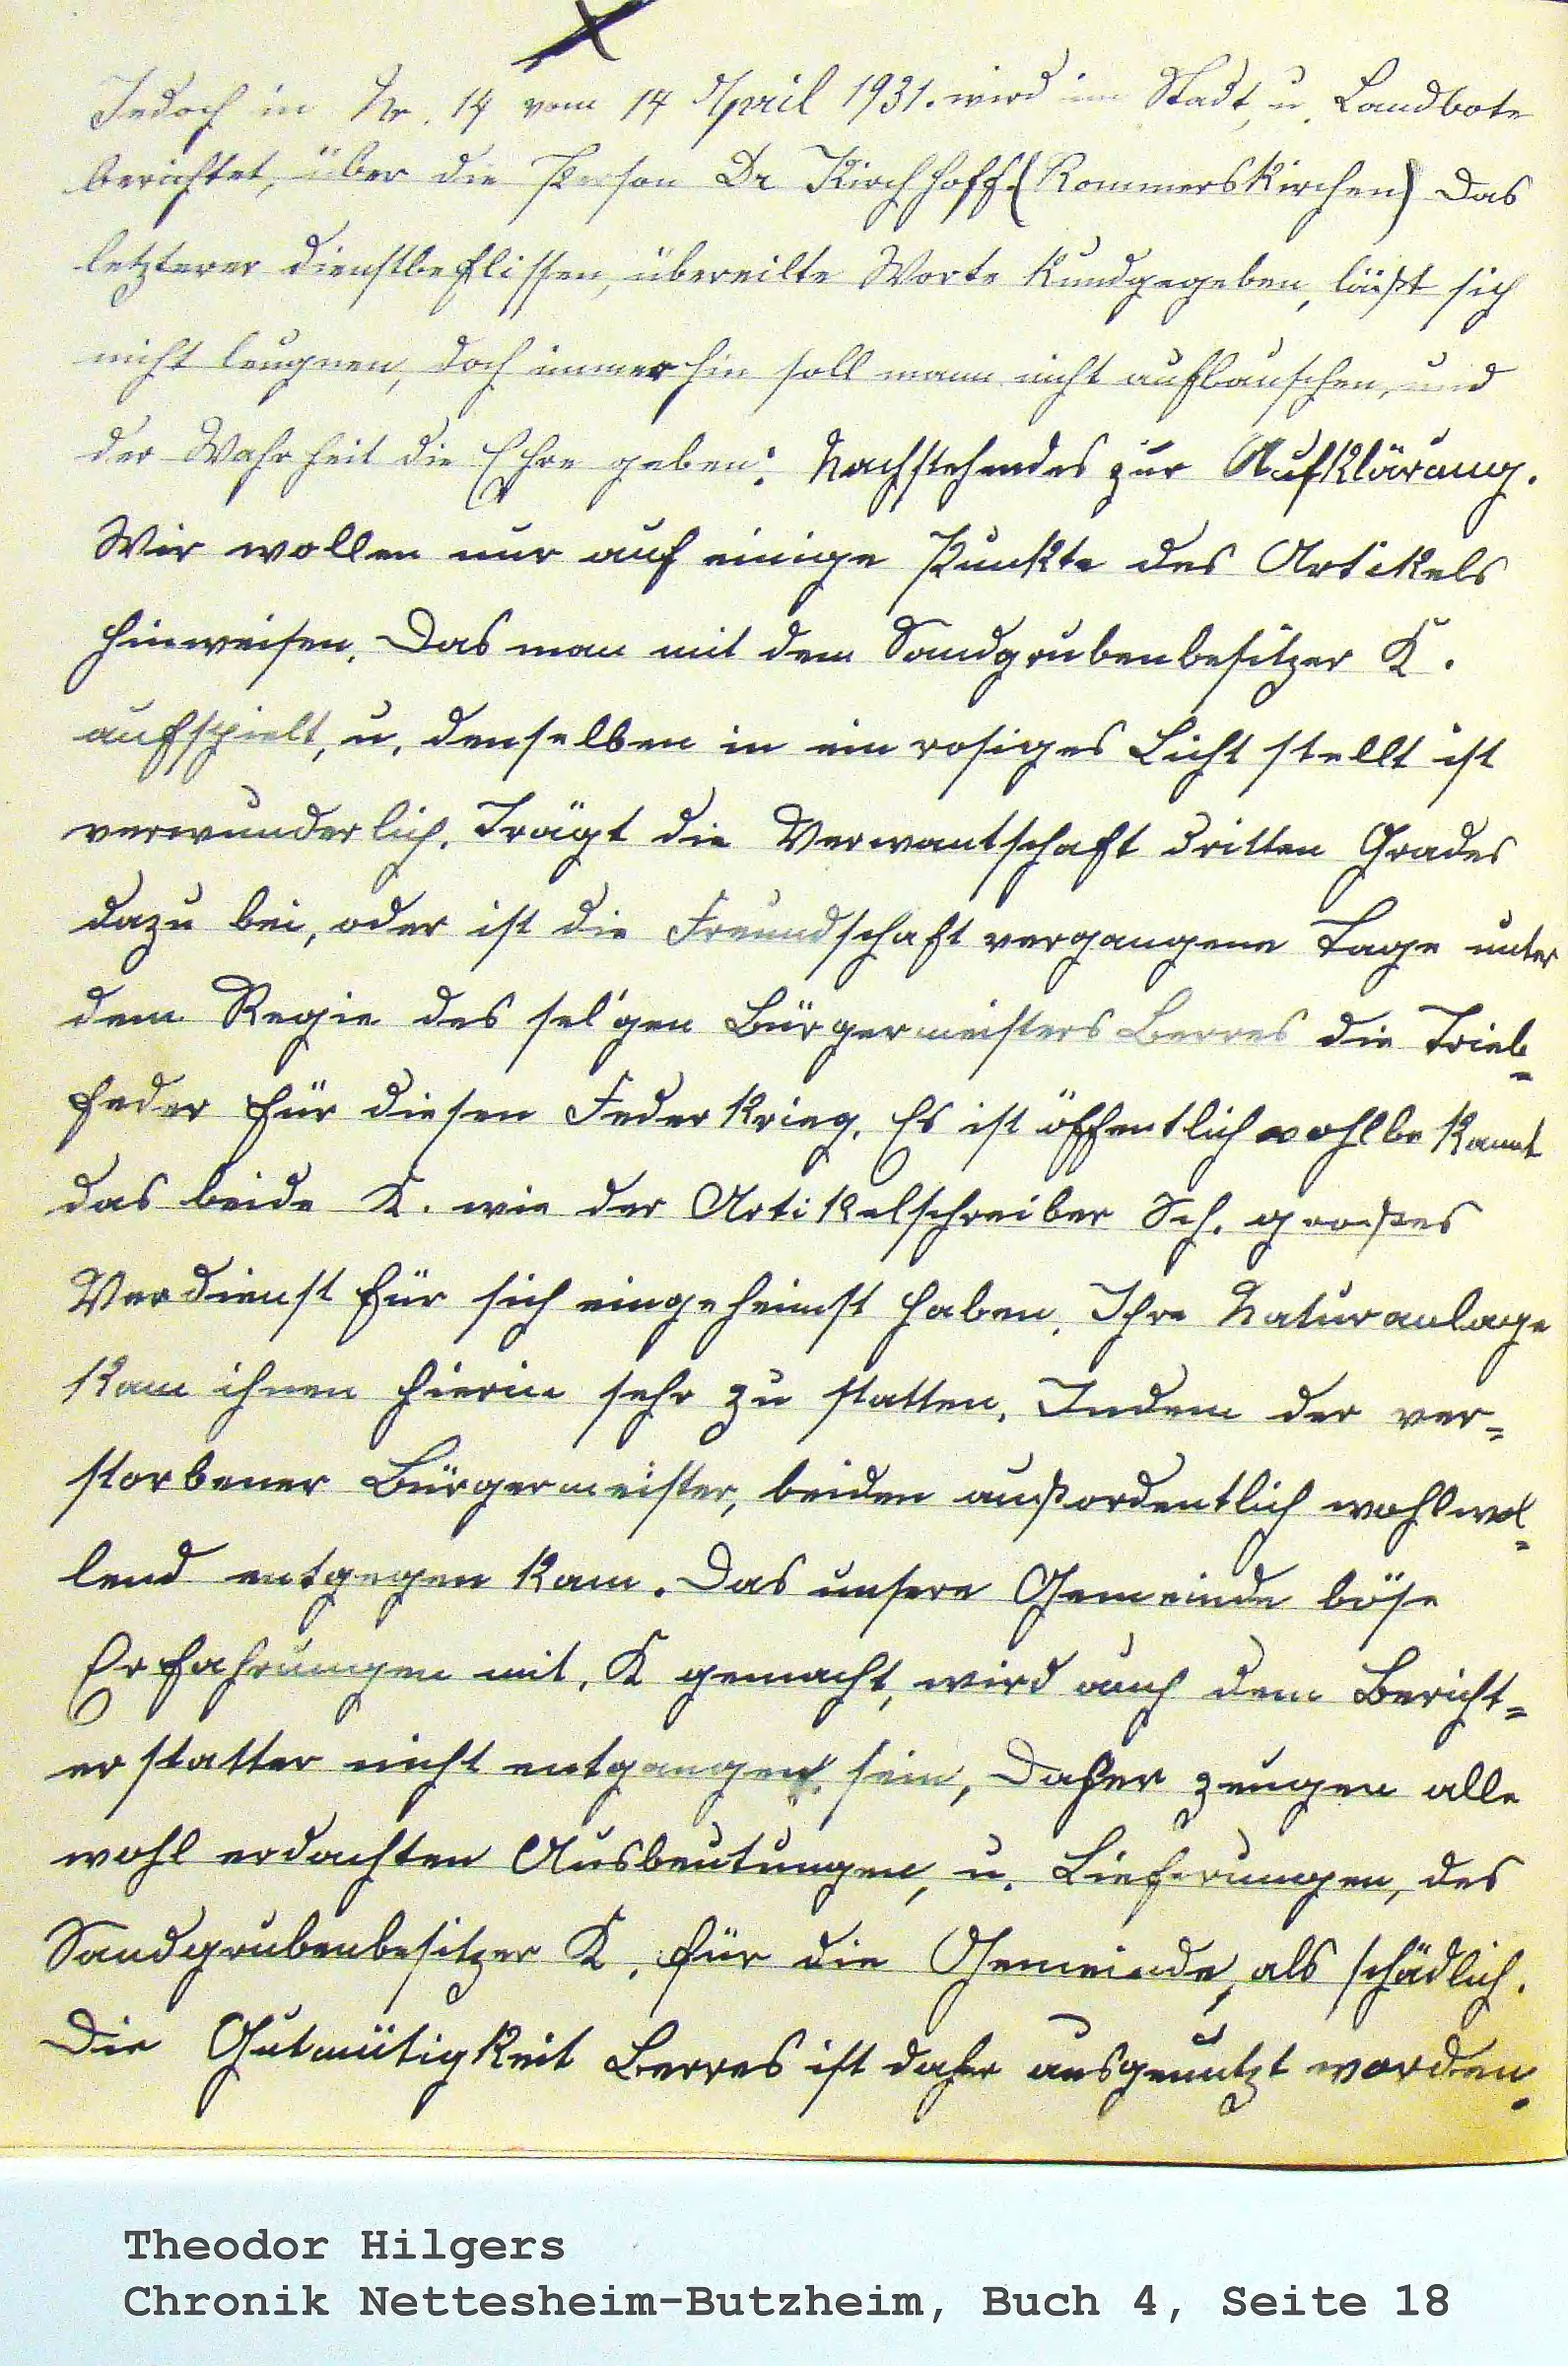 Jedoch in Nr. 14 vom 14 April 1931. wird im Stadt, u. Landbote
berichtet, über die Person Dr Kirchhoff (Rommerskirchen) Das
letzterer dienstbeflissen, übereilte Worte kundgegeben, läßt sich
nicht leugnen, doch immer hin soll mann nicht aufbauschen, und
der Wahrheit die Ehre geben: Nachstehendes zur Aufklärung.
Wir wollen nur auf einige Punkte des Artikels
hinweisen. Das man mit dem Sandgrubenbesitzer K.
aufspielt, u. denselben in ein rosiges Licht stellt ist
verwunderlich. Trägt die Verwantschaft dritten Grades
dazu bei, oder ist die Freundschaft vergangene Tage unter
dem Regie des sel'gen Bürgermeisters Berres die Trieb=
feder für diesen Federkrieg. Es ist öffentlich wohlbekannt
das beide K. wie der Artikelschreiber Sch. großes
Verdienst für sich eingeheimst haben. Ihre Naturanlage
kam ihnen hierin sehr zu statten. Indem der ver=
storbener Bürgermeister, beiden außordentlich wohlwol=
lend entgegen kam. Das unsere Gemeinde böse
Erfahrungen mit. K gemacht, wird auch dem Bericht=
erstatter nicht entgangen sein, Daher zeugen alle
wohl erdachten Ausbeutungen, u. Lieferungen, des
Sandgrubenbesitzer K. für die Gemeinde, als schädlich.
Die Gutmütigkeit Berres ist daher ausgenutzt worden.
Theodor Hilgers
Chronik Nettesheim-Butzheim, Buch 4, Seite 18